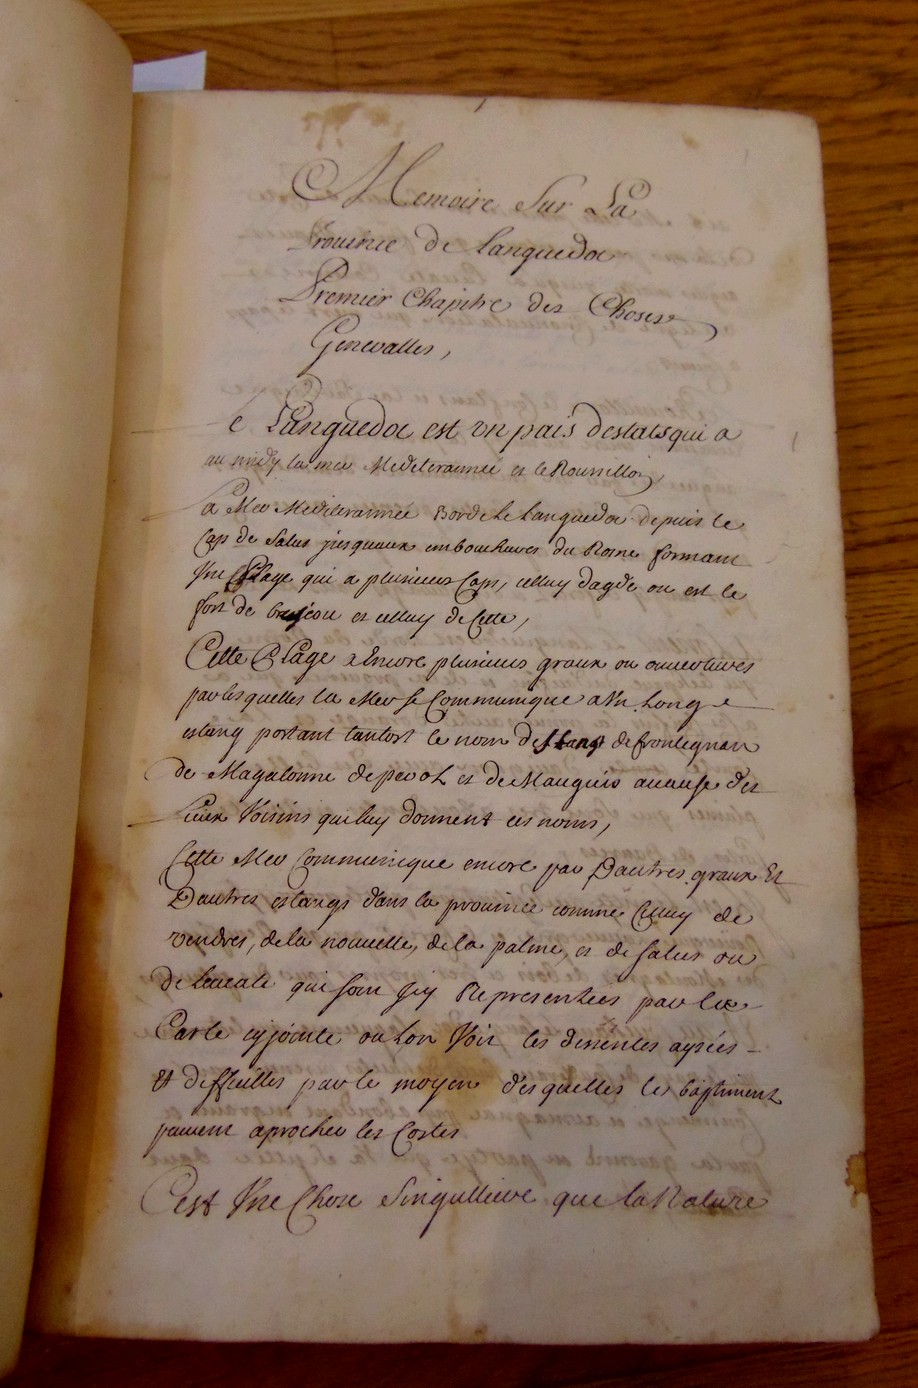 Memoire Sur La
Prouince de Languedoc
Premier Chapitre des Choses
Generalles,
Le Languedoc est vn païs destats qui a
au midy la mer Mediterannée et le Roussillon,
La Mer Mediterannée Borde Le Languedoc depuis le
Cap de Salses jusquaux embouchures du Rosne formant
Vne Plage qui a plusieurs Caps, celluy dagde ou est le
fort de brescou et celluy de Cette,
Cette Plage a Encore plusieurs graux ou ouuertures
par les quelles la Mer se Communique a Vn Long
estang portant tantost le nom destang de frontegnan
de Magalonne de perols et de Mauguio a cause des
Lieux Voisins qui luy donnent ces noms,
Cette Mer Communicque encore par Dautres graux Et
Dautres estangs dans la prouince comme Celluy de
vendres, de la nouuelle, de la palme, et de salses ou
de leucate qui sont Jcy Representées par la
Carte cyjointe ou Lon Voit les dessentes aysées
Et difficilles par le moyen des quelles les bastiments
peuuent aprocher les Costes
Cest Vne Chose Singulliere que la Nature